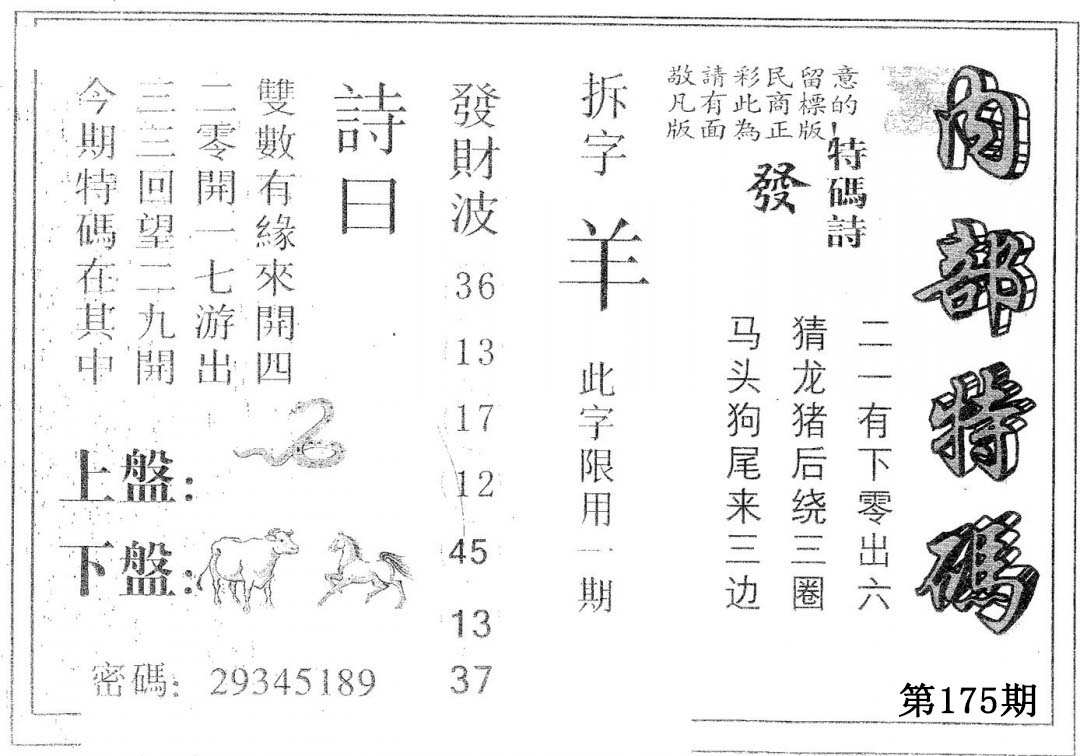 內部特碼
第175期
敬請彩民留意
凡有此商標的
版面為正版
特碼詩
發
二一有下零出六
猜龙猪后绕三圈
马头狗尾来三边
拆字
羊
此字限用一期
發財波
36
13
17
12
45
13
37
詩曰
雙數有緣來開四
二零開一七游出
三三回望二九開
今期特碼在其中
上盤:
下盤:
密碼: 29345189